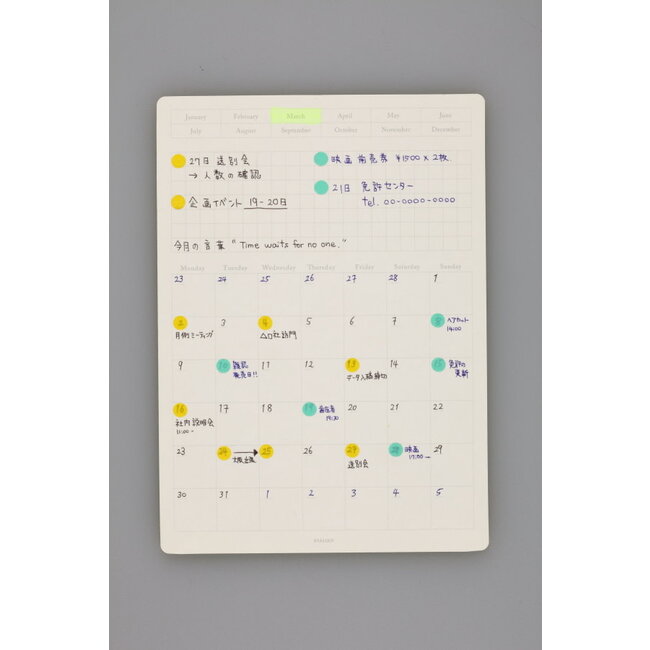 January February March April May June
July August September October November December
27日 送別会
→ 人数の確認
映画 前売券 ¥1500×2枚.
21日 免許センター
企画イベント 19-20日
tel. 00-0000-0000
今月の言葉 "Time waits for no one."
Monday Tuesday Wednesday Thursday Friday Saturday Sunday
23 24 25 26 27 28 1
2 3 4 5 6 7 8
月例ミーティング △□社訪問 ヘアカット
14:00
9 10 11 12 13 14 15
雑誌 発売日!! データ入稿締切 免許の更新
16 17 18 19 20 21 22
社内説明会 歯医者
11:00~ 19:30
23 24 → 25 26 27 28 29
大阪 送別会 映画
17:00~
30 31 1 2 3 4 5